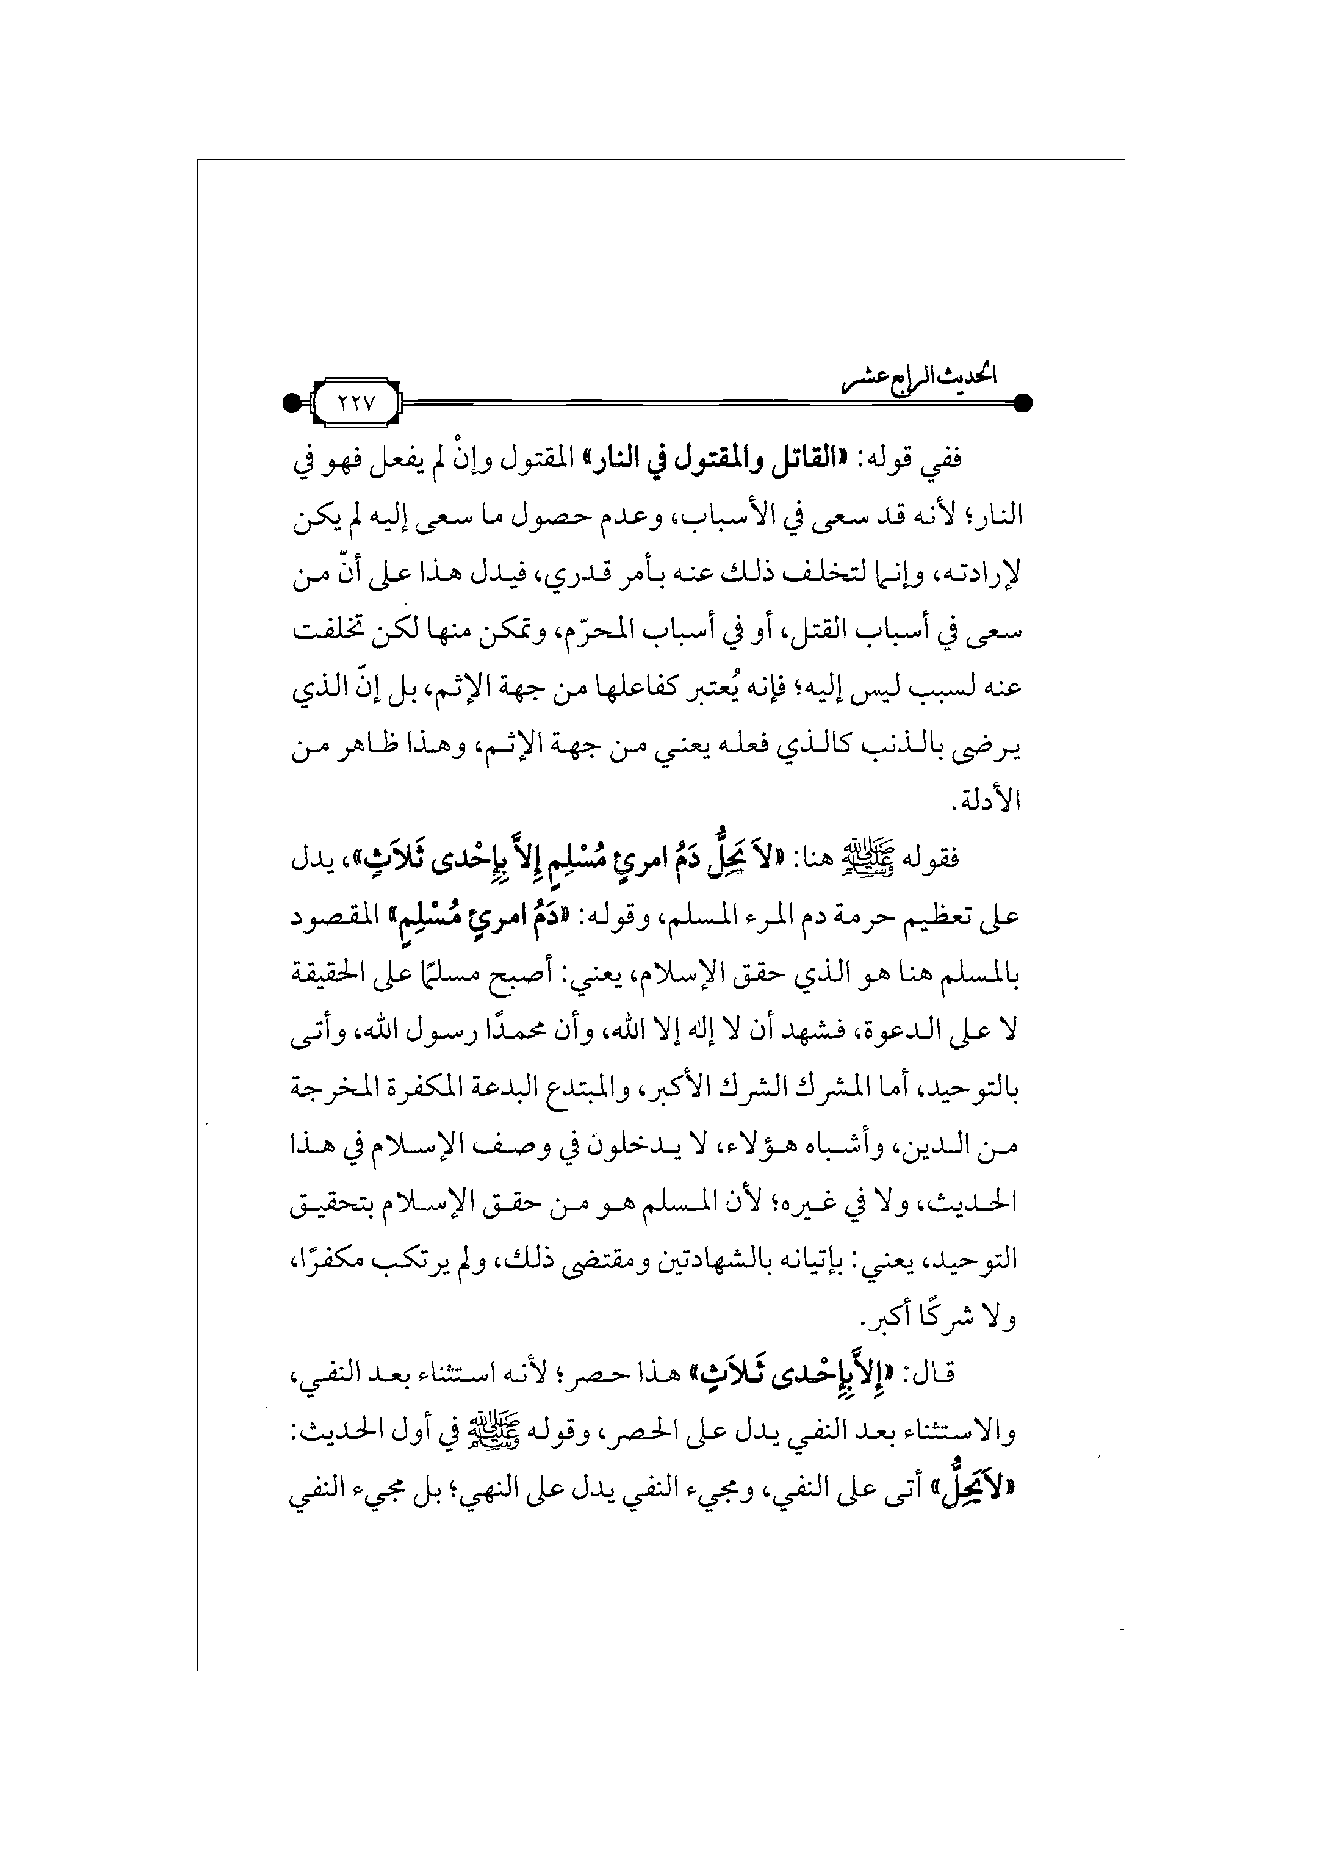 الحديث الرابع عشر
٢٢٧
ففي قوله: «القاتل والمقتول في النار» المقتول وإنْ لم يفعل فهو في
النار؛ لأنه قد سعى في الأسباب، وعدم حصول ما سعى إليه لم يكن
لإرادته، وإنما لتخلف ذلك عنه بأمر قدري، فيدل هذا على أنّ من
سعى في أسباب القتل، أو في أسباب المحرّم، وتمكن منها لكن تخلفت
عنه لسبب ليس إليه؛ فإنه يُعتبر كفاعلها من جهة الإثم، بل إنّ الذي
يرضى بالذنب كالذي فعله يعني من جهة الإثم، وهذا ظاهر من
الأدلة.
فقوله ﷺ هنا: «لاَ يَحِلُّ دَمُ امرئٍ مُسْلِمٍ إِلاَّ بِإِحْدى ثَلاَثٍ»، يدل
على تعظيم حرمة دم المرء المسلم، وقوله: «دَمُ امرئٍ مُسْلِمٍ» المقصود
بالمسلم هنا هو الذي حقق الإسلام، يعني: أصبح مسلمًا على الحقيقة
لا على الدعوة، فشهد أن لا إله إلا الله، وأن محمدًا رسول الله، وأتى
بالتوحيد، أما المشرك الشرك الأكبر، والمبتدع البدعة المكفرة المخرجة
من الدين، وأشباه هؤلاء، لا يدخلون في وصف الإسلام في هذا
الحديث، ولا في غيره؛ لأن المسلم هو من حقق الإسلام بتحقيق
التوحيد، يعني: بإتيانه بالشهادتين ومقتضى ذلك، ولم يرتكب مكفرًا،
ولا شركًا أكبر.
قال: «إِلاَّبِإِحْدى ثَلاَثٍ» هذا حصر؛ لأنه استثناء بعد النفي،
والاستثناء بعد النفي يدل على الحصر، وقوله ﷺ في أول الحديث:
«لاَيَحِلُّ» أتى على النفي، ومجيء النفي يدل على النهي؛ بل مجيء النفي